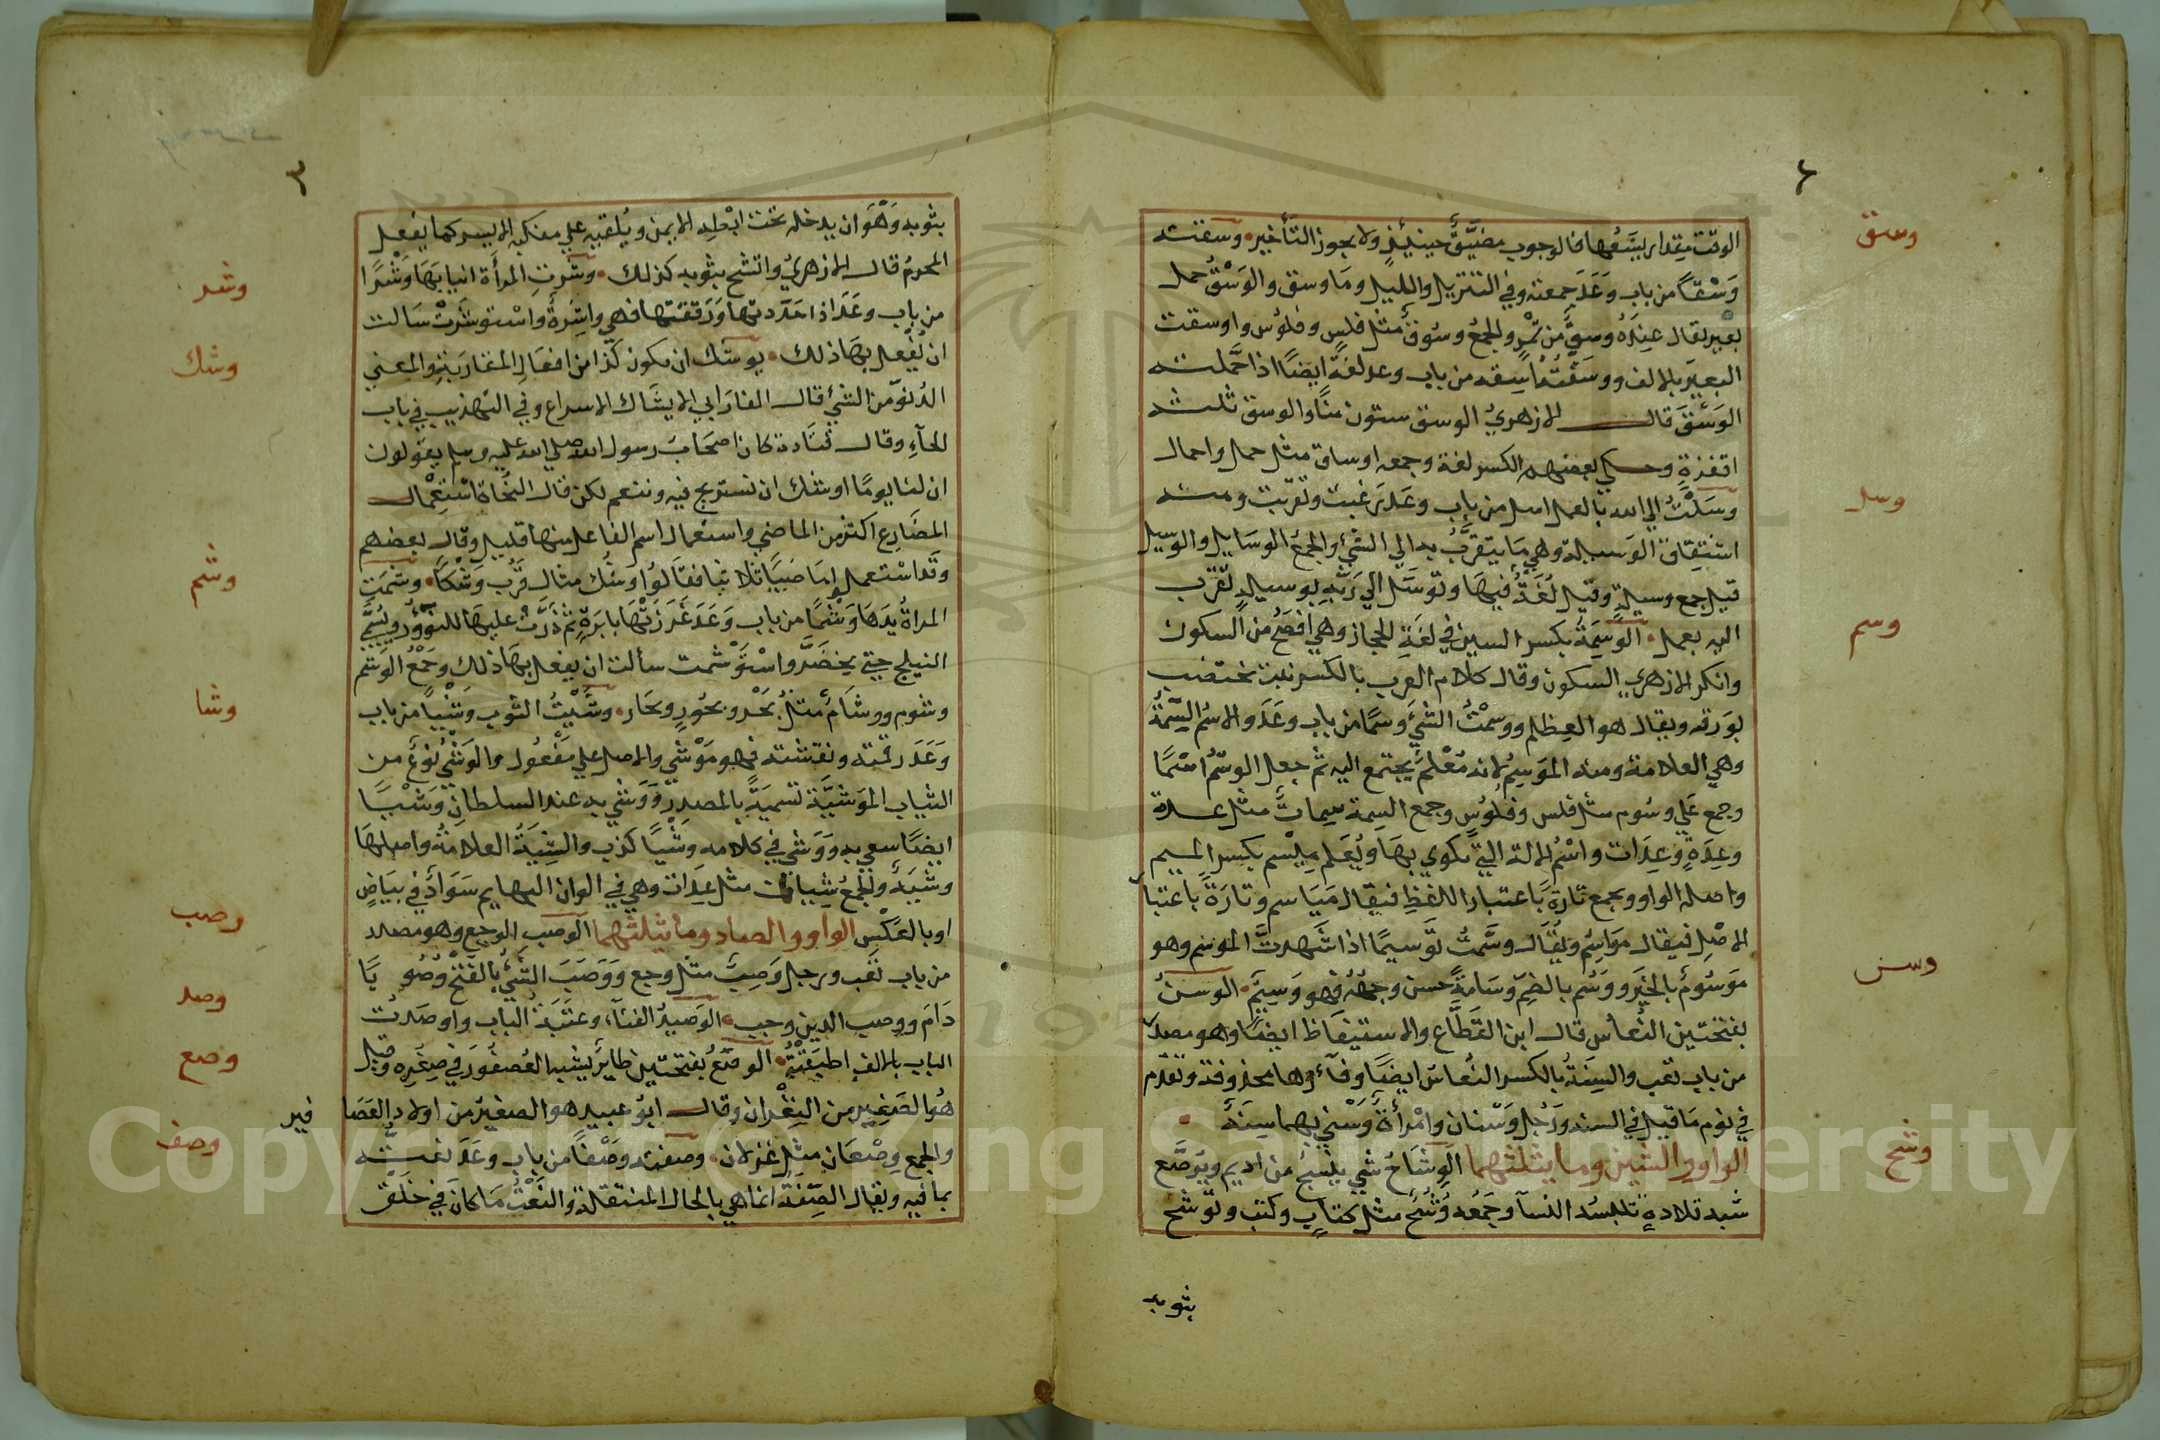 ٤
وسق
الوقت بمقدار يسعها فالوجوب مضيق حينئذ ولا يجوز التأخير • وسقته
وسقا من باب وعد جمعته وفي التنزيل والليل وما وسق والوسق حمل
بعير يقال عنده وسق من تمر والجمع وسوق مثل فلس وفلوس واوسقت
البعير بالالف ووسقته اسقه من باب وعد لغة ايضا اذا حملته
الوسق قال الازهري الوسق ستون منا والوسق ثلثه
اقفزة وحكي بعضهم الكسر لغة وجمعه اوساق مثل حمل واحمال
وسل
وسلت الي الله بالعمل اسل من باب وعد رغبت وتقربت ومنه
اشتقاق الوسيلة وهي ما يتقرب به الي الشيء والجمع الوسايل والوسيل
قيل جمع وسيلة وقيل لغة فيها وتوسل الي ربه بوسيلة تقرب
وسم
اليه بعمل • الوسمة بكسر السين في لغة الحجاز وهي افصح من السكون
وانكر الازهري السكون وقال كلام العرب بالكسر نبت يختضب
بورقه ويقال هو العظلم ووسمت الشيء وسما من باب وعد والاسم السمة
وهي العلامة ومنه الموسم لانه معلم يجتمع اليه ثم جعل الوسم اسما
وجمع علي وسوم مثل فلس وفلوس وجمع السمة سمات مثل عدة
وعدة وعدات واسم الالة التي يكوي بها ويعلم ميسم بكسر الميم
واصله الواو ويجمع تارة باعتبار اللفظ فيقال مياسم وتارة باعتبا
الاصل فيقال مواسم ويقال وسمت توسيما اذا شهدت الموسم وهو
وسن
موسوم بالخير ووسم بالضم وسامة حسن وجهه فهو وسيم • الوسن
بفتحتين النعاس قال ابن القطاع والاستيقاظ ايضا وهو مصد
من باب تعب والسنة بالكسر النعاس ايضا وفاؤها محذوفة وتقدم
في نوم ما قيل في السنة ورجل وسنان وامرأة وسني بهما سنة •
وشح
الواو والشين وما يثلثهما الوشاح شي ينسج من اديم ويرصع
شبه قلادة تلبسه النسآ وجمعه وشح مثل كتاب وكتب وتوشح
بثوبه
٣
بثوبه وهو ان يدخله تحت ابطه الايمن ويلقيه علي منكبه الايسر كما يفعل
وشر
المحرم قال الازهري واتشح بثوبه كذلك • وشرت المرأة انيابها وشرا
من باب وعد اذا حددتها ورققتها فهي واشرة واستوشرت سالت
وشك
ان يفعل بها ذلك • يوشك ان يكون كذا من افعال المقاربة والمعني
الدنو من الشيء قال الفارابي الايشاك الاسراع وفي التهذيب في باب
الحآء وقال قتادة كان اصحاب رسول الله صلي الله عليه وسلم يقولون
ان لنا يوما اوشك ان نستريح فيه وننعم لكن قال النحاة استعمال
المضارع اكثر من الماضي واستعمال اسم الفاعل منها قليل وقال بعضهم
وشم
وقد استعملوا ماضيا ثلاثيا فقالوا وشك مثال قرب وشكا • وشمت
المراة يدها وشما من باب وعد غرزتها بابرة ثم ذرت عليها النوؤر ويسمي
النيلج حتي يخضر واستوشمت سألت ان يفعل بها ذلك وجمع الوشم
وشا
وشوم ووشام مثل بحر وبحور وبحار • وشيت الثوب وشيا من باب
وعد رقمته ونقشته فهو موشي والاصل علي مفعول والوشي نوع من
الثياب الموشية تسمية بالمصدر ووشي به عند السلطان وشيا
ايضا سعي به ووشي في كلامه وشيا كذب والشية العلامة واصلها
وشية والجمع شيات مثل عدات وهي في الوان البهايم سواد في بياض
وصب
او بالعكس الواو والصاد وما يثلثهما الوصب الوجع وهو مصدر
من باب تعب ورجل وصب مثل وجع ووصب الشيء بالفتح وصو با
وصد
دام ووصب الدين وجب • الوصيد الفنآء وعتبة الباب واوصدت
وصع
الباب بالالف اطبقته • الوصع بفتحتين طاير يشبه العصفور في صغره وقيل
هو الصغير من النغران وقال ابو عبيد هو الصغير من اولاد العصا فير
وصف
والجمع وصعان مثل غزلان • وصفته وصفا من باب وعد نعته
بما فيه ويقال الصفة انما هي بالحال المنتقلة والنعت ما كان في خلق
Copyright © King Saud University